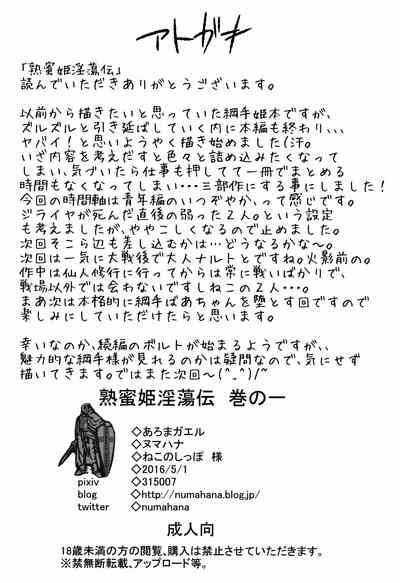 アトガキ
『熟蜜姫淫蕩伝』
読んでいただきありがとうございます。
以前から描きたいと思っていた綱手姫本ですが、
ズルズルと引き延ばしていく内に本編も終わり、、、
ヤバイ!と思いようやく描き始めました(汗。
いざ内容を考えだすと色々と詰め込みたくなって
しまい、気づいたら仕事も押してて一冊でまとめる
時間もなくなってしまい・・・三部作にする事にしました!
今回の時間軸は青年編のいつぞやか、って感じです。
ジライヤが死んだ直後の弱った2人。という設定
も考えましたが、ややこしくなるので止めました。
次回そこら辺も差し込むかは…どうなるかな〜。
次回は一気に大戦後で大人ナルトとですね。火影前の。
作中は仙人修行に行ってからは常に戦いばかりで、
戦場以外では会わないですしねこの2人・・・。
まあ次は本格的に綱手ばあちゃんを堕とす回ですので
楽しみにしていただけたらと思います。
幸いなのか、続編のボルトが始まるようですが、、
魅力的な綱手様が見れるのかは疑問なので、気にせず
描いてきます。ではまた次回〜(^_^)/~
熟蜜姫淫蕩伝 巻の一
◇あろまガエル
◇ヌマハナ
◇ねこのしっぽ 様
◇2016/5/1
pixiv ◇315007
blog ◇http://numahana.blog.jp/
twitter ◇numahana
成人向
18歳未満の方の閲覧、購入は禁止させていただきます。
※禁無断転載、アップロード等。